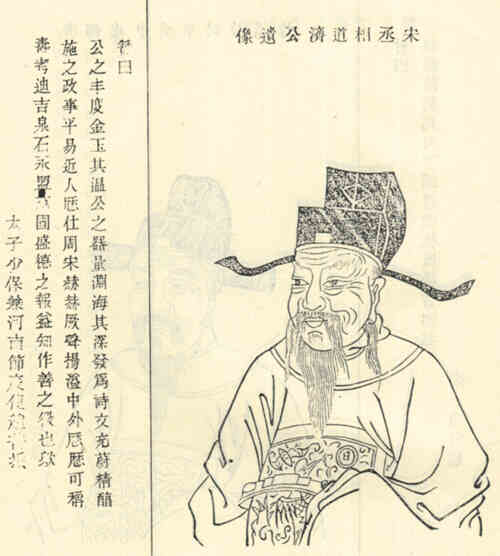 宋丞相道濟公遺像
贊曰
公之丰度金玉其溫公之器量淵海其深發爲詩文充蔚精醇
施之政事平易近人歷仕周宋赫赫厥聲揚溢中外歷歷可稱
壽考迪吉泉石永盟固盛德之報益知作善之也歟
太子少保兼河南節度使